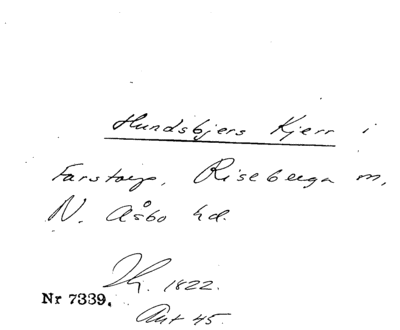 Hundsbjers Kjerr i
Farstorp, Riseberga m,
N. Åsbo hd.
Th. 1822.
Nr 7339.
Ant 45.